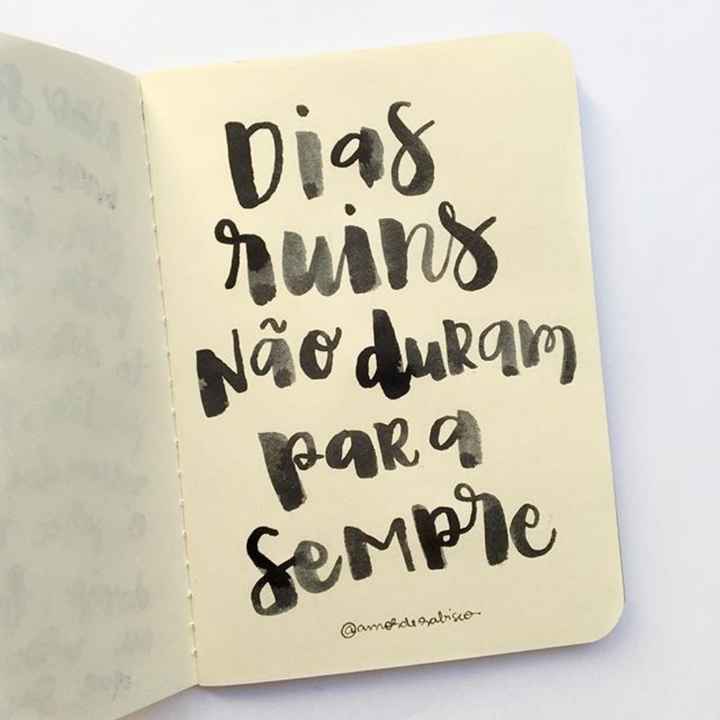 Dias
ruins
não duram
para
sempre
@amorderabisco